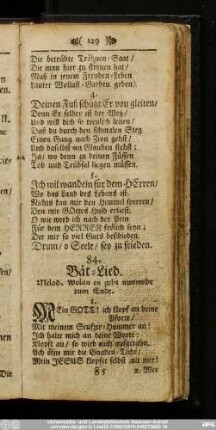 129
Die betrübte Trähnen-Saat/
Die man hier zu streuen hat/
Muß in jenem Freuden-Leben
Lauter Wollust-Garben geben.
4.
Deinen Fuß schützt Er von gleiten/
Denn Er selber ist der Weg/
Und will dich so treulich leiten/
Daß du durch den schmalen Steg
Einen Gang nach Zion gehst/
Und daselbst im Glauben stehst:
Ja/ wo denn zu deinen Füssen
Tod und Trübsal liegen müssen.
5.
Ich will wandeln für dem HErren/
Wo das Land des Lebens ist.
Nichts kan mir den Himmel sperren/
Den mir GOttes Huld erliest.
O wie werd ich nach der Pein
Für dem HERREN frölich seyn;
Der mir so viel Guts beschieden
Drum/ o Seele/ sey zu frieden.
84.
Bät-Lied.
Melod. Wolan es geht nunmehr
zum Ende.
1.
MEin GOTT! ich klopf an deine
Pforte/
Mit meinem Seufzer-Hammer an!
Ich halte mich an deine Worte:
Klopft an/ so wird euch aufgethan.
Ach öfne mir die Gnaden-Thür/
Mein JESUS klopfet selbst mit mir!
2. Wer
Die